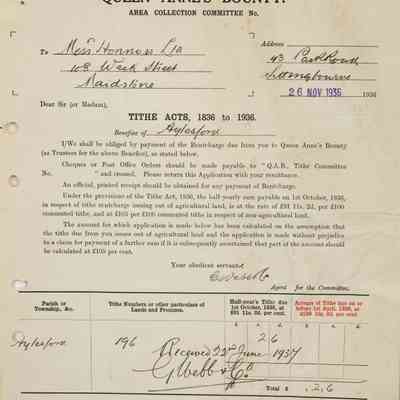 QUEEN ANNE'S BOUNTY.
AREA COLLECTION COMMITTEE No.
To Messrs Ltd
Address 43 Park Road
108 Week Street
Sittingbourne
Maidstone
26 NOV 1936 1936
Dear Sir (or Madam),
TITHE ACTS, 1836 to 1936.
Benefice of Aylesford
I/We shall be obliged by payment of the Rentcharge due from you to Queen Anne's Bounty
(as Trustees for the above Benefice), as stated below.
Cheques or Post Office Orders should be made payable to "Q.A.B. Tithe Committee
No. " and crossed. Please return this Application with your remittance.
An official, printed receipt should be obtained for any payment of Rentcharge.
Under the provisions of the Tithe Act, 1936, the half-yearly sum payable on 1st October, 1936,
in respect of tithe rentcharge issuing out of agricultural land, is at the rate of £91 11s. 2d. per £100
commuted tithe, and at £105 per £100 commuted tithe in respect of non-agricultural land.
The amount for which application is made below has been calculated on the assumption that
the tithe due from you issues out of agricultural land and the application is made without prejudice
to a claim for payment of a further sum if it is subsequently ascertained that part of the amount should
be calculated at £105 per cent.
Your obedient servant
G Webb
Agent for the Committee.
Parish or Township, &c.
Tithe Numbers or other particulars of Lands and Premises.
Half-year's Tithe due 1st October, 1936, @ £91 11s. 2d. per cent.
Arrears of Tithe due on or before 1st April, 1936, at £105 10s. per cent.
Aylesford 196 2 6
Received 22nd June 1937
G Webb & Co
Total £ . 2 . 6